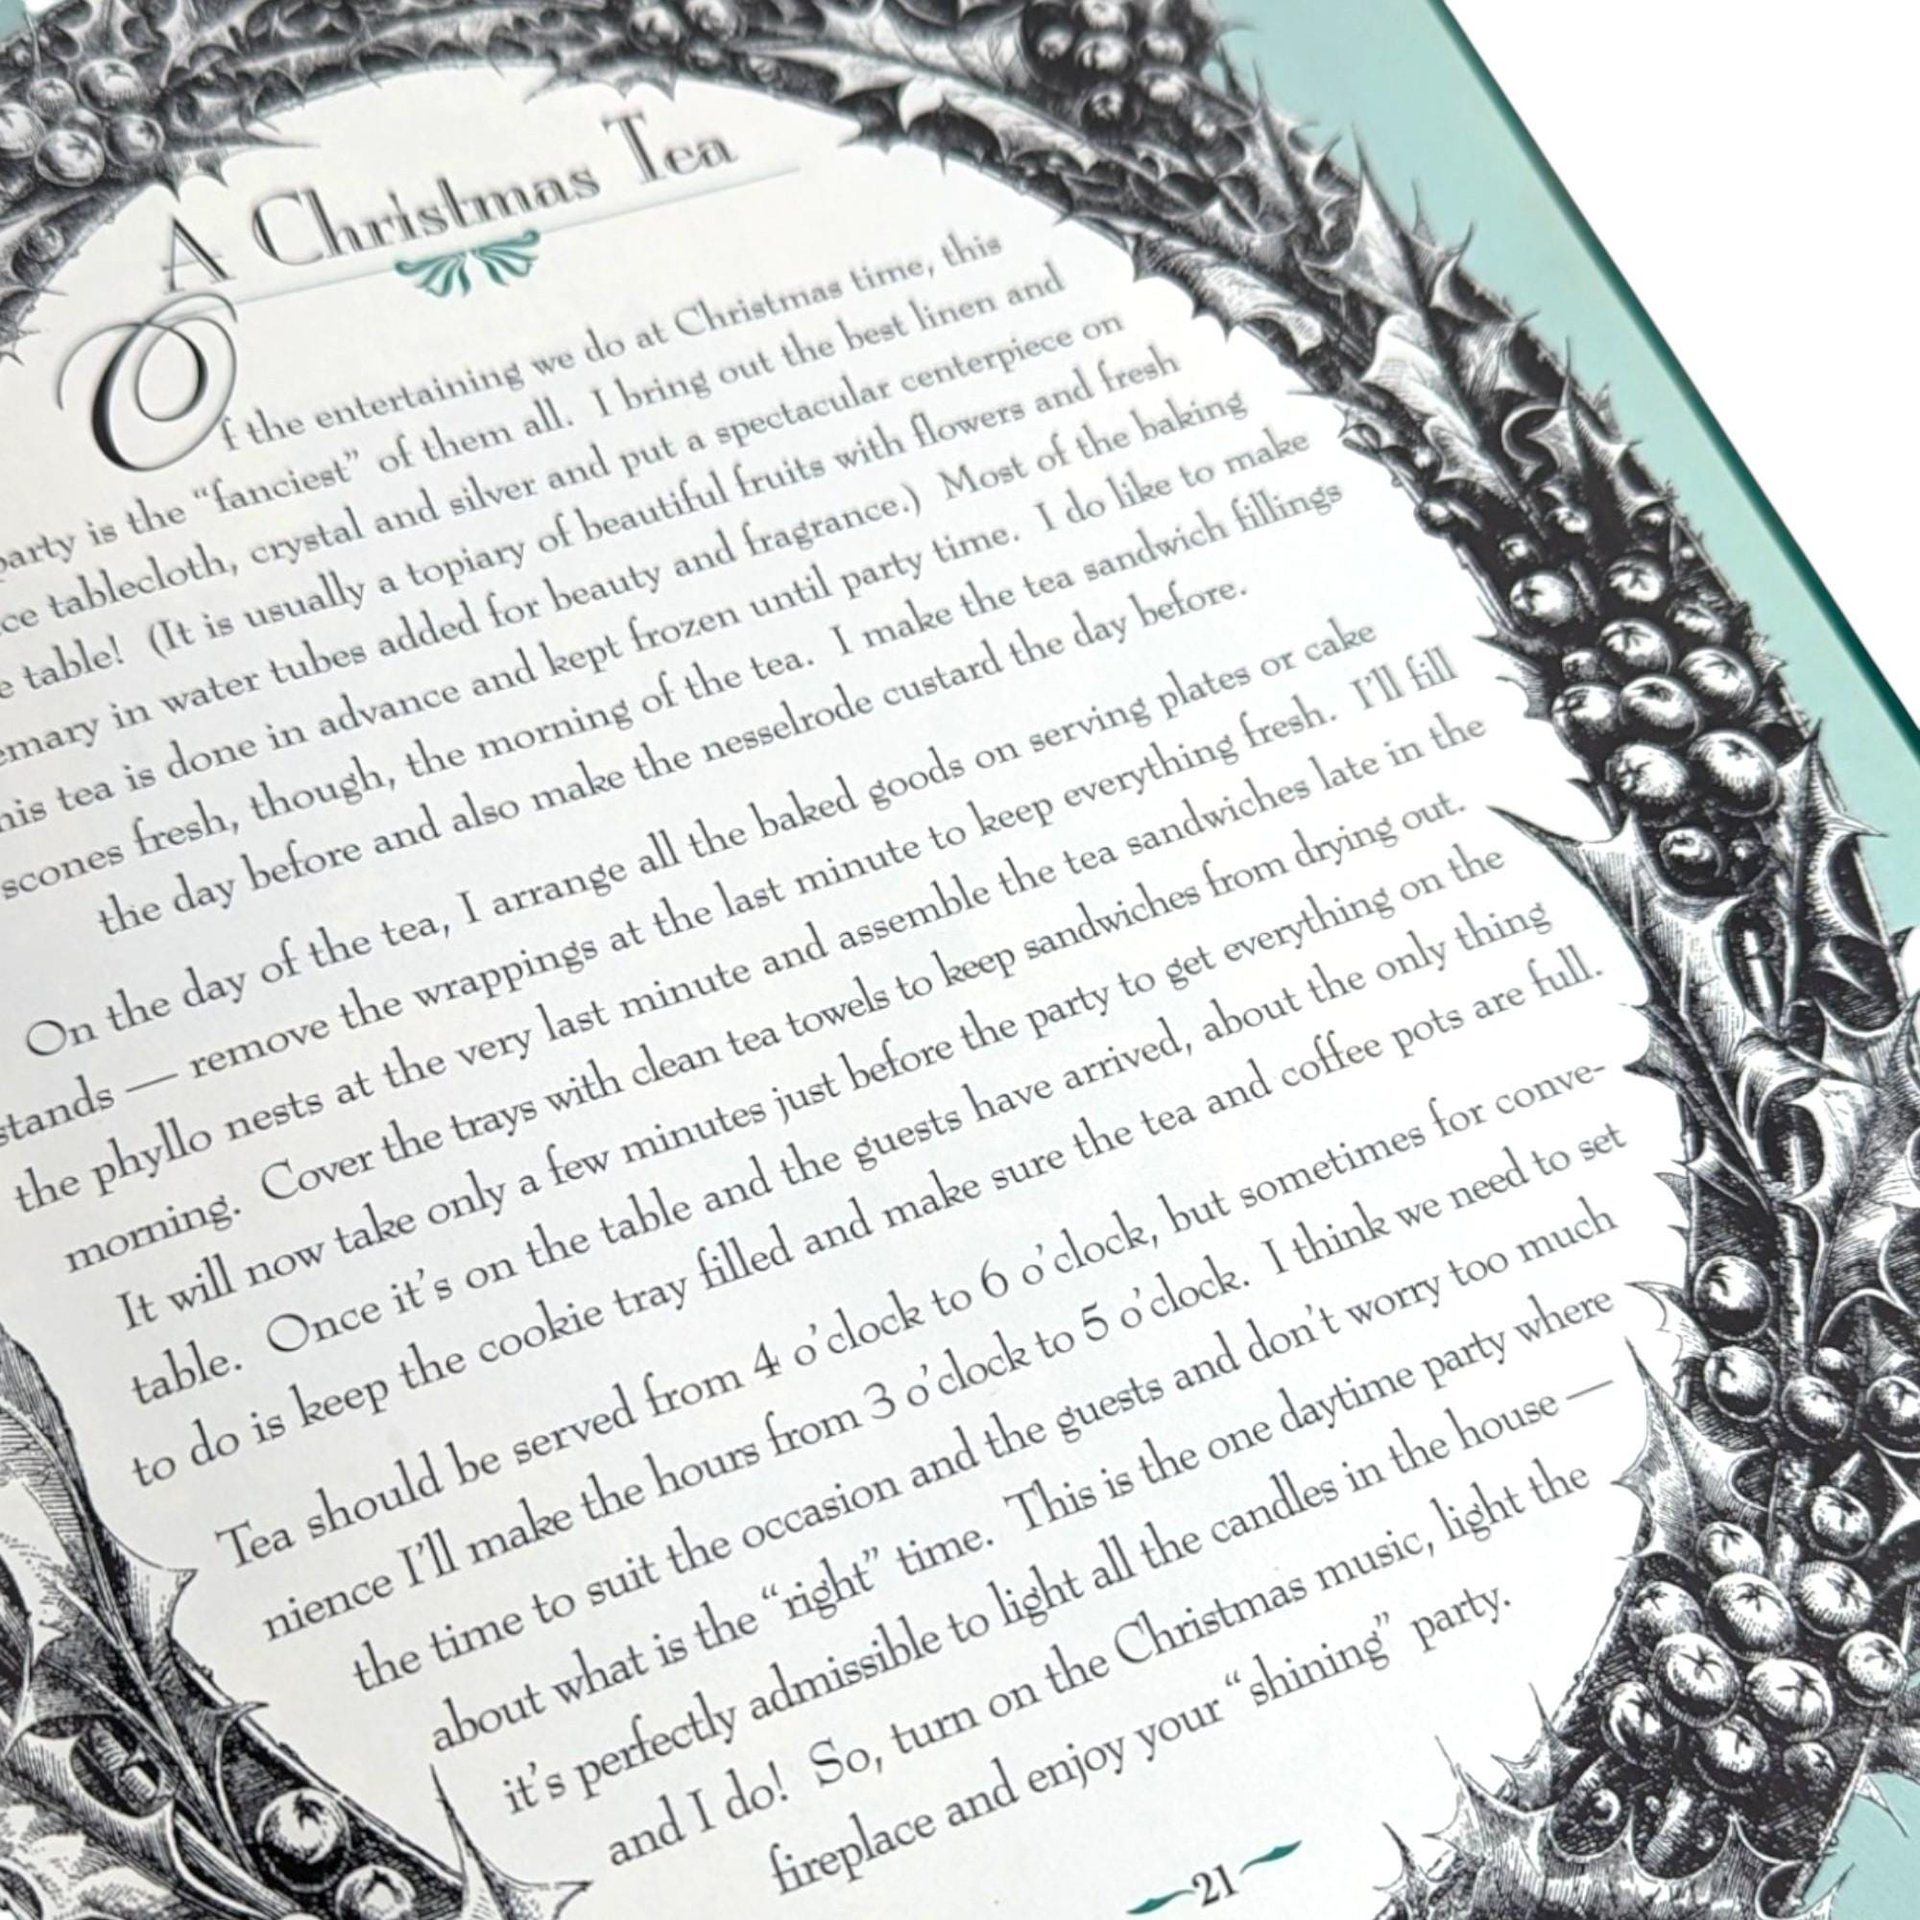 A Christmas Tea
Of the entertaining we do at Christmas time, this
party is the “fanciest” of them all. I bring out the best linen and
tablecloth, crystal and silver and put a spectacular centerpiece on
table! (It is usually a topiary of beautiful fruits with flowers and fresh
in water tubes added for beauty and fragrance.) Most of the baking
tea is done in advance and kept frozen until party time. I do like to make
scones fresh, though, the morning of the tea. I make the tea sandwich fillings
the day before and also make the nesselrode custard the day before.
On the day of the tea, I arrange all the baked goods on serving plates or cake
stands — remove the wrappings at the last minute to keep everything fresh. I’ll fill
the phyllo nests at the very last minute and assemble the tea sandwiches late in the
morning. Cover the trays with clean tea towels to keep sandwiches from drying out.
It will now take only a few minutes just before the party to get everything on the
table. Once it’s on the table and the guests have arrived, about the only thing
to do is keep the cookie tray filled and make sure the tea and coffee pots are full.
Tea should be served from 4 o’clock to 6 o’clock, but sometimes for conve-
nience I’ll make the hours from 3 o’clock to 5 o’clock. I think we need to set
the time to suit the occasion and the guests and don’t worry too much
about what is the “right” time. This is the one daytime party where
it’s perfectly admissible to light all the candles in the house —
and I do! So, turn on the Christmas music, light the
fireplace and enjoy your “shining” party.
21